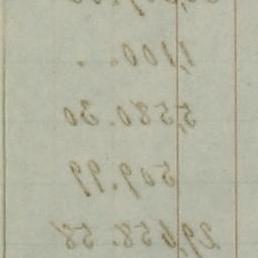 1,100. .
5,580.30
509.99
29,658.58